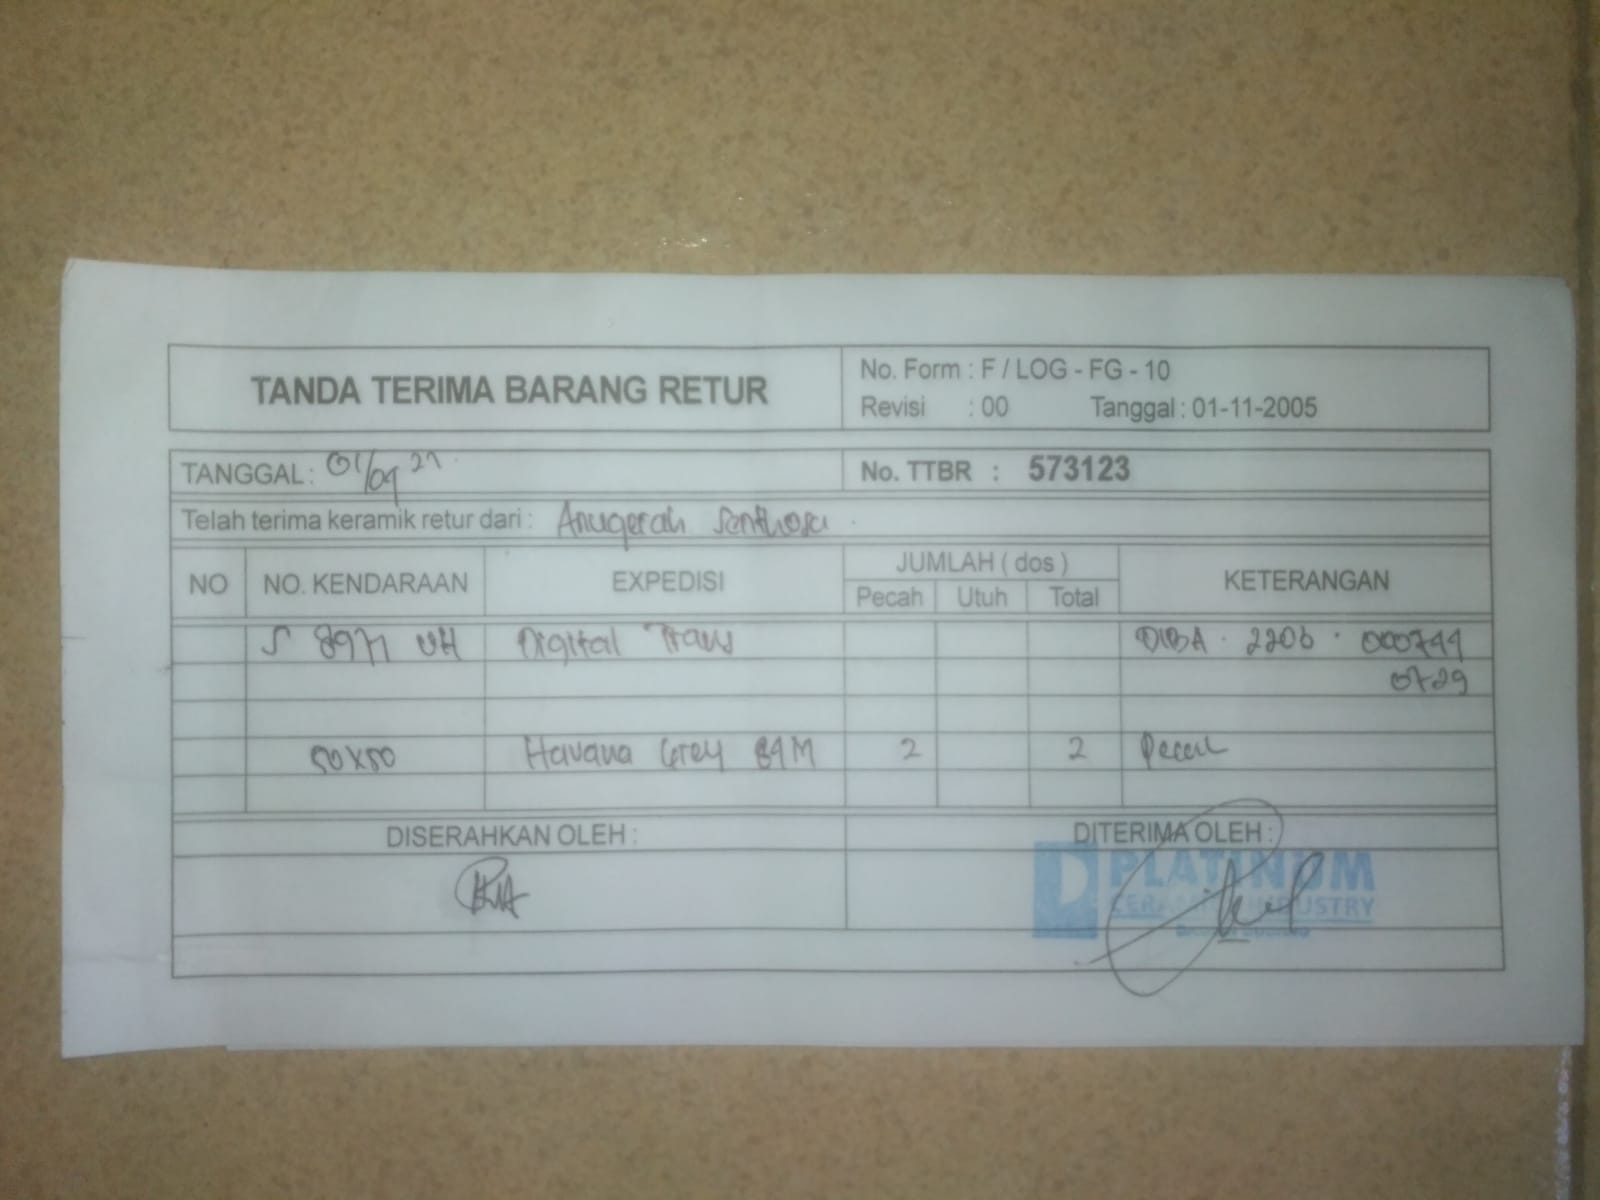 TANDA TERIMA BARANG RETUR
No. Form : F / LOG - FG - 10
Revisi : 00 Tanggal : 01-11-2005
TANGGAL : 01/09 21
No. TTBR : 573123
Telah terima keramik retur dari : Anugerah Senthosa
NO NO. KENDARAAN EXPEDISI JUMLAH ( dos ) KETERANGAN
Pecah Utuh Total
S 8971 UH Digital Trans 2206 . 000744
0729
50x50 Havana Grey 2 2 Pecah
DISERAHKAN OLEH :
DITERIMA OLEH :
PLATINUM
CERAMICS INDUSTRY